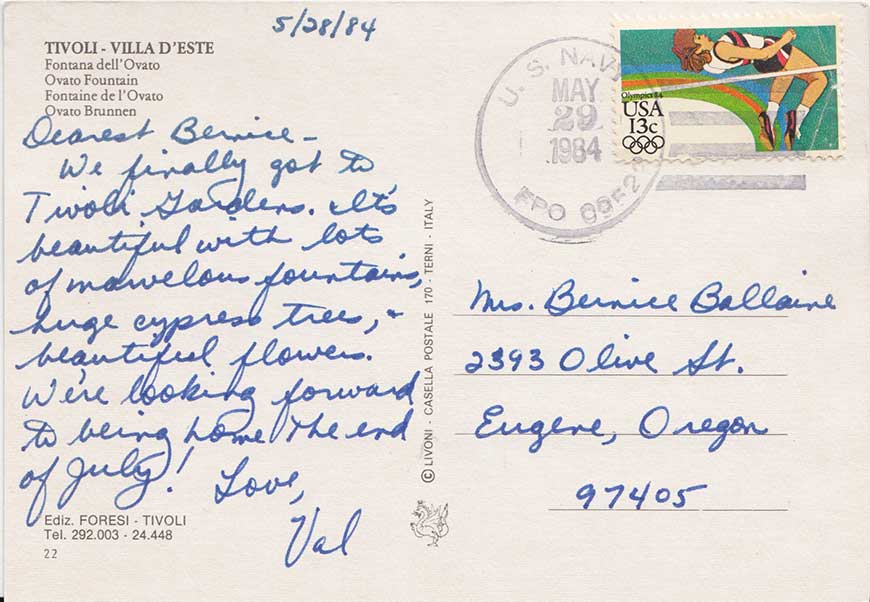 5/28/84
TIVOLI - VILLA D'ESTE
Fontana dell'Ovato
Ovato Fountain
Fontaine de l'Ovato
Ovato Brunnen
Dearest Bernice -
We finally got to
Tivoli Gardens. It's
beautiful with lots
of marvelous fountains,
huge cypress trees, &
beautiful flowers.
We're looking forward
to being home the end
of July!
Love,
Val
Ediz. FORESI - TIVOLI
Tel. 292.003 - 24.448
22
© LIVONI - CASELLA POSTALE 170 - TERNI - ITALY
U. S. NAVY
MAY
29
1984
FPO
Olympics 84
USA
13c
Mrs. Bernice Ballaine
2393 Olive St.
Eugene, Oregon
97405